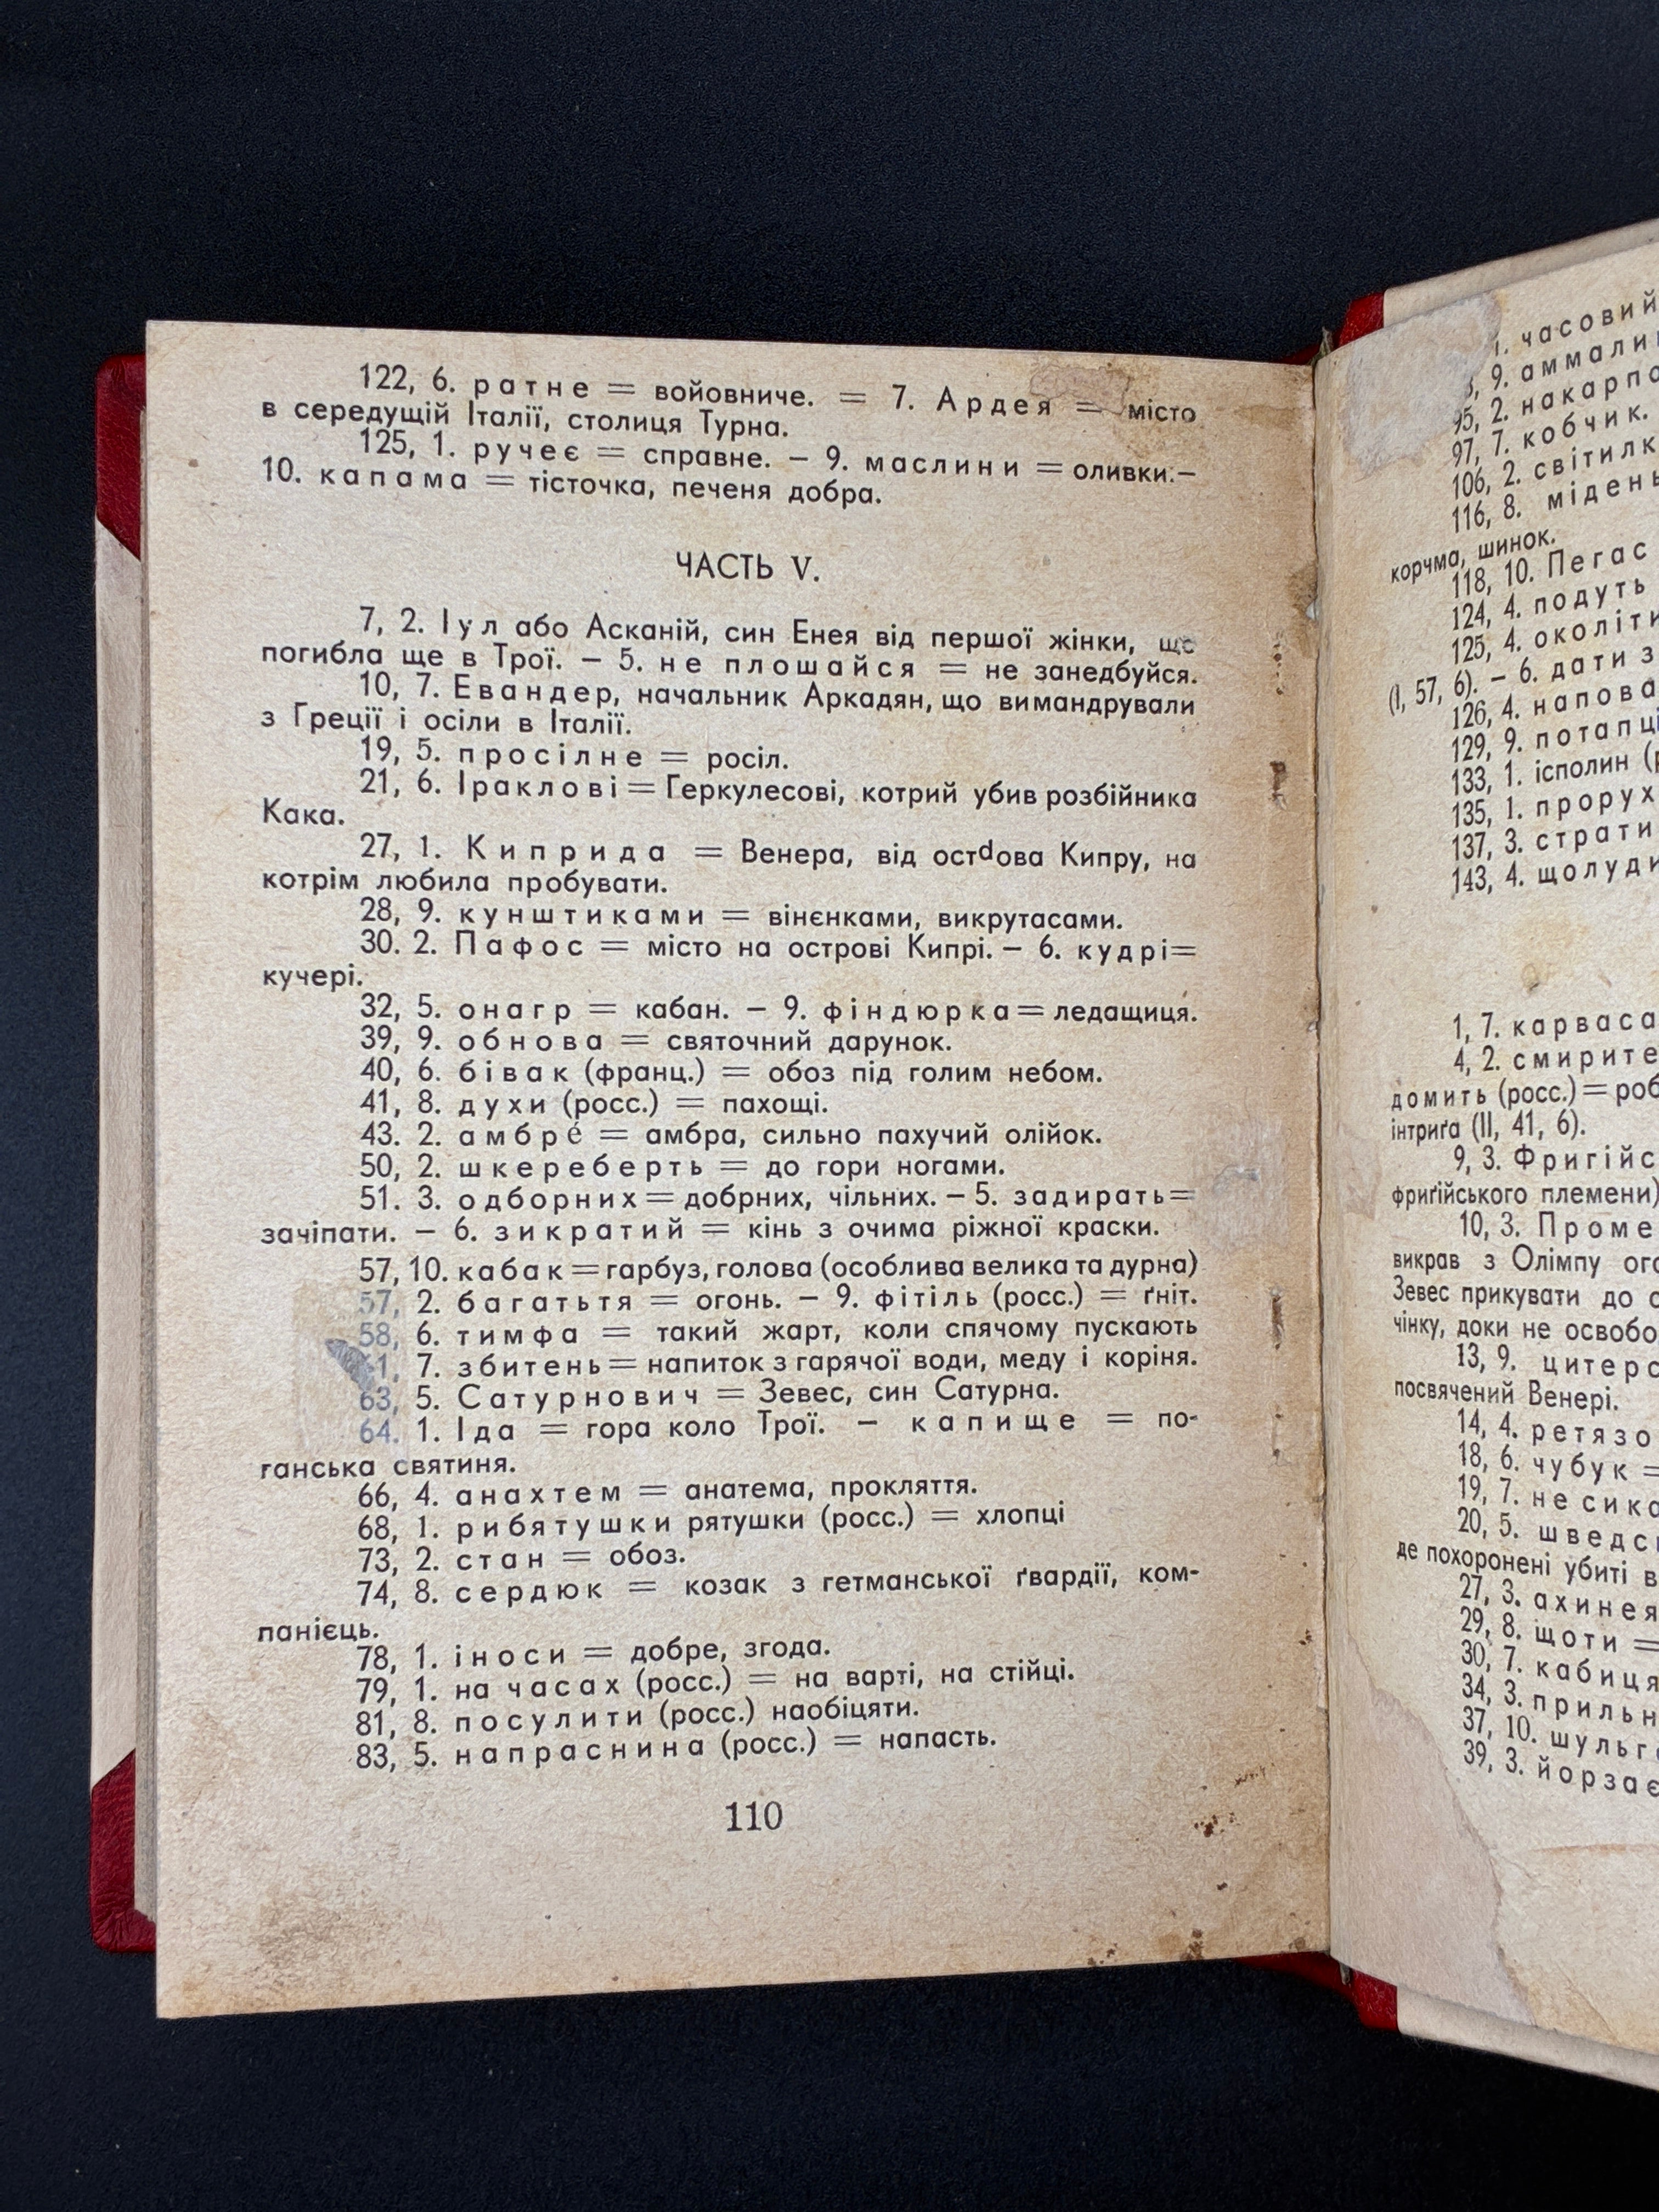 122, 6. ратне = войовниче. = 7. Ардея = місто
в середущій Італії, столиця Турна.
125, 1. ручеє = справне. – 9. маслини = оливки.–
10. капама = тісточка, печеня добра.
ЧАСТЬ V.
7, 2. Іул або Асканій, син Енея від першої жінки, що
погибла ще в Трої. – 5. не плошайся = не занедбуйся.
10, 7. Евандер, начальник Аркадян, що вимандрували
з Греції і осіли в Італії.
19, 5. просілне = росіл.
21, 6. Іраклові = Геркулесові, котрий убив розбійника
Кака.
27, 1. Киприда = Венера, від остdова Кипру, на
котрім любила пробувати.
28, 9. кунштиками = вінєнками, викрутасами.
30. 2. Пафос = місто на острові Кипрі. – 6. кудрі=
кучері.
32, 5. онагр = кабан. – 9. фіндюрка = ледащиця.
39, 9. обнова = святочний дарунок.
40, 6. бівак (франц.) = обоз під голим небом.
41, 8. духи (росс.) = пахощі.
43. 2. амбре́ = амбра, сильно пахучий олійок.
50, 2. шкереберть = до гори ногами.
51. 3. одборних = добрних, чільних. – 5. задирать=
зачіпати. – 6. зикратий = кінь з очима ріжної краски.
57, 10. кабак = гарбуз, голова (особлива велика та дурна)
57, 2. багатьтя = огонь. – 9. фітіль (росс.) = ґніт.
58, 6. тимфа = такий жарт, коли спячому пускають
1, 7. збитень = напиток з гарячої води, меду і коріня.
63, 5. Сатурнович = Зевес, син Сатурна.
64. 1. Іда = гора коло Трої. – капище = по-
ганська святиня.
66, 4. анахтем = анатема, прокляття.
68, 1. рибятушки рятушки (росс.) = хлопці
73, 2. стан = обоз.
74, 8. сердюк = козак з гетманської ґвардії, ком-
панієць.
78, 1. іноси = добре, згода.
79, 1. на часах (росс.) = на варті, на стійці.
81, 8. посулити (росс.) наобіцяти.
83, 5. напраснина (росс.) = напасть.
110
1. часовий
9. аммали
95, 2. накарпо
97, 7. кобчик.
106, 2. світилк
116, 8. мідень
корчма, шинок.
118, 10. Пегас
124, 4. подуть
125, 4. околіти
(I, 57, 6). – 6. дати з
126, 4. напова
129, 9. потапці
133, 1. ісполин (
135, 1. прорух
137, 3. страти
143, 4. щолуди
1, 7. карваса
4, 2. смирите
домить (росс.) = роб
інтриґа (II, 41, 6).
9, 3. Фригійс
фриґійського племени)
10, 3. Проме
викрав з Олімпу ог
Зевес прикувати до с
чінку, доки не освобо
13, 9. цитерс
посвячений Венері.
14, 4. ретязо
18, 6. чубук =
19, 7. не сика
20, 5. шведс
де похоронені убиті в
27, 3. ахинея
29, 8. щоти =
30, 7. кабиця
34, 3. прильн
37, 10. шульг
39, 3. йорзає